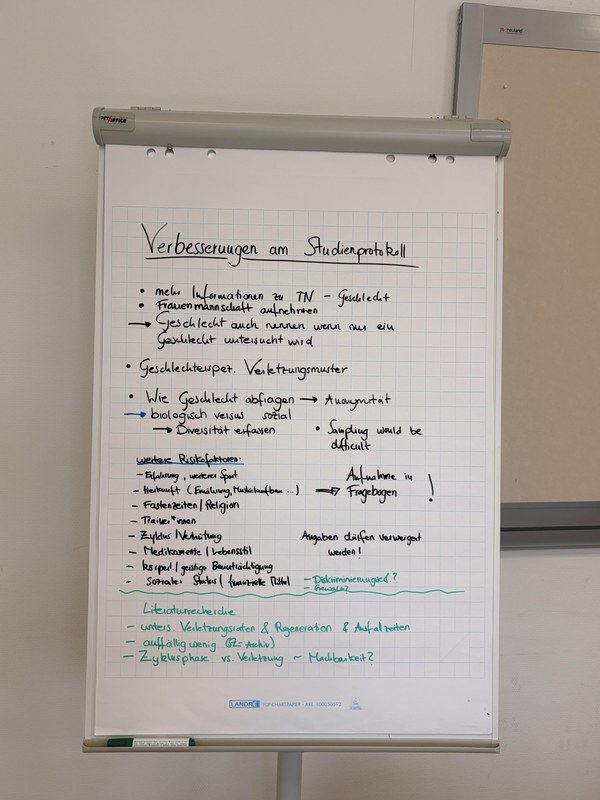 Verbesserungen am Studienprotokoll
• mehr Informationen zu TN - Geschlecht
• Frauenmannschaft aufnehmen
→ Geschlecht auch nennen wenn nur ein
Geschlecht untersucht wird
• Geschlechterspez. Verletzungsmuster
• Wie Geschlecht abfragen → Anonymität
→ biologisch versus sozial
→ Diversität erfassen
• Sampling would be
difficult
weitere Risikofaktoren:
- Erfahrung, weiterer Sport
- Herkunft (Ernährung, Muskelaufbau ...)
⇒ Aufnahme in
Fragebogen !
- Fastenzeiten / Religion
- Trainer*innen
- Zyklus / Verhütung
- Medikamente / Lebensstil
- körperl. / geistige Beeinträchtigung
- Sozialer Status / finanzielle Mittel
Angaben dürfen verweigert
werden!
- Diskriminierungserf.?
- Gewalt?
Literaturrecherche
- unters. Verletzungsraten & Regeneration & Ausfallzeiten
- auffällig wenig
- Zyklusphase vs. Verletzung - Machbarkeit?
LANDRÉ
FLIPCHART-PAPIER